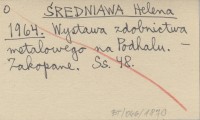 O ŚREDNIAWA Helena
1964. Wystawa zdobnictwa
metalowego na Podhalu. –
Zakopane. Ss. 48.